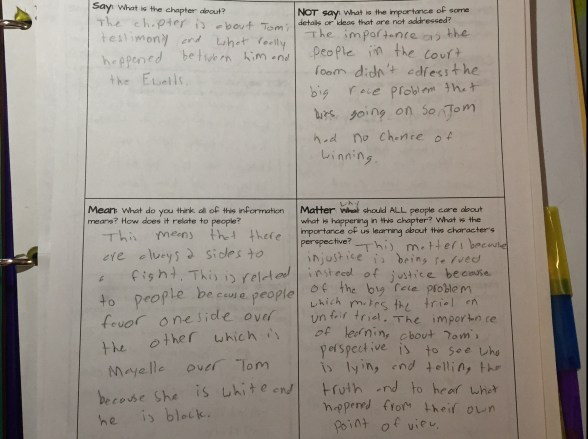 Say: What is the chapter about?
The chipter is about Tom's
testimony and what really
happened between him and
the Ewells.
NOT say: What is the importance of some
details or ideas that are not addressed?
The importance is the
people in the court
room didn't adress the
big race problem that
was going on so Tom
had no chance of
winning.
Mean: What do you think all of this information
means? How does it relate to people?
This means that there
are always 2 sides to
a fight. This is related
to people because people
favor one side over
the other which is
Mayella over Tom
because she is white and
he is black.
Matter What why should ALL people care about
what is happening in this chapter? What is the
importance of us learning about this character's
perspective? This matters because
injustice is being served
instead of justice because
of the big race problem
which makes the trial an
unfair trial. The importance
of learning about Tom's
perspective is to see who
is lying, and telling the
truth and to hear what
happened from their own
point of view.